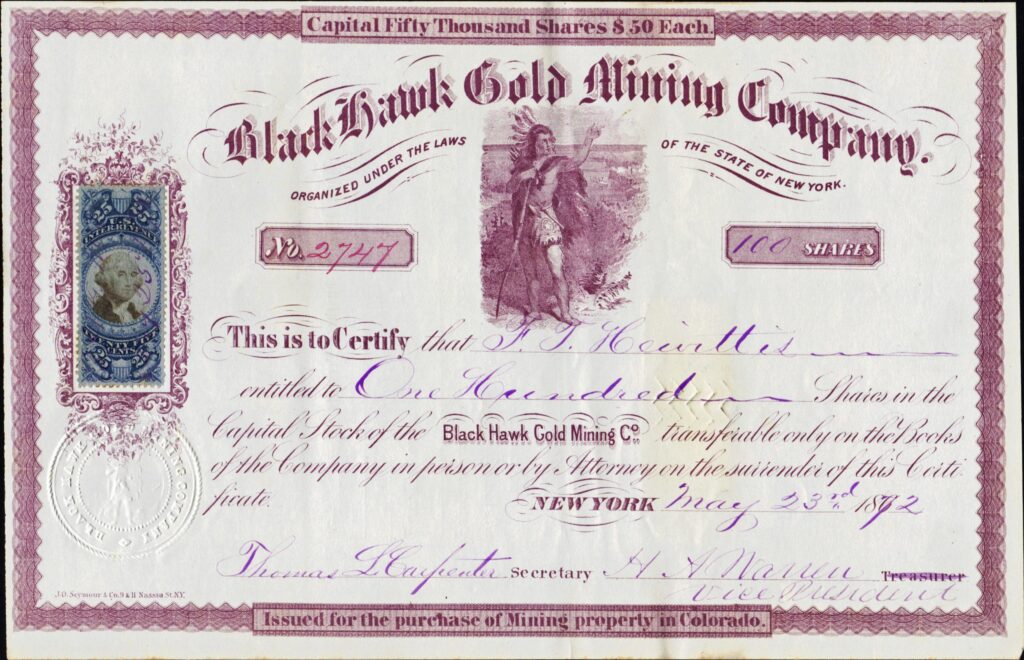 Capital Fifty Thousand Shares $50 Each.
Black Hawk Gold Mining Company.
ORGANIZED UNDER THE LAWS
OF THE STATE OF NEW YORK.
25 25
INTER. REVENUE
TWENTY FIVE
CENTS
25 25
No. 2747
100 SHARES
This is to Certify that F. T. Hewitt is
entitled to One Hundred Shares in the
Capital Stock of the Black Hawk Gold Mining Co. transferable only on the Books
of the Company in person or by Attorney on the surrender of this Certi-
ficate.
NEW YORK May 23rd 1872
BLACK HAWK GOLD MINING COMPANY
Thomas L Carpenter Secretary H A Warren Treasurer
Vice President
J.O. Seymour & Co. 9 & 11 Nassau St. N.Y.
Issued for the purchase of Mining property in Colorado.